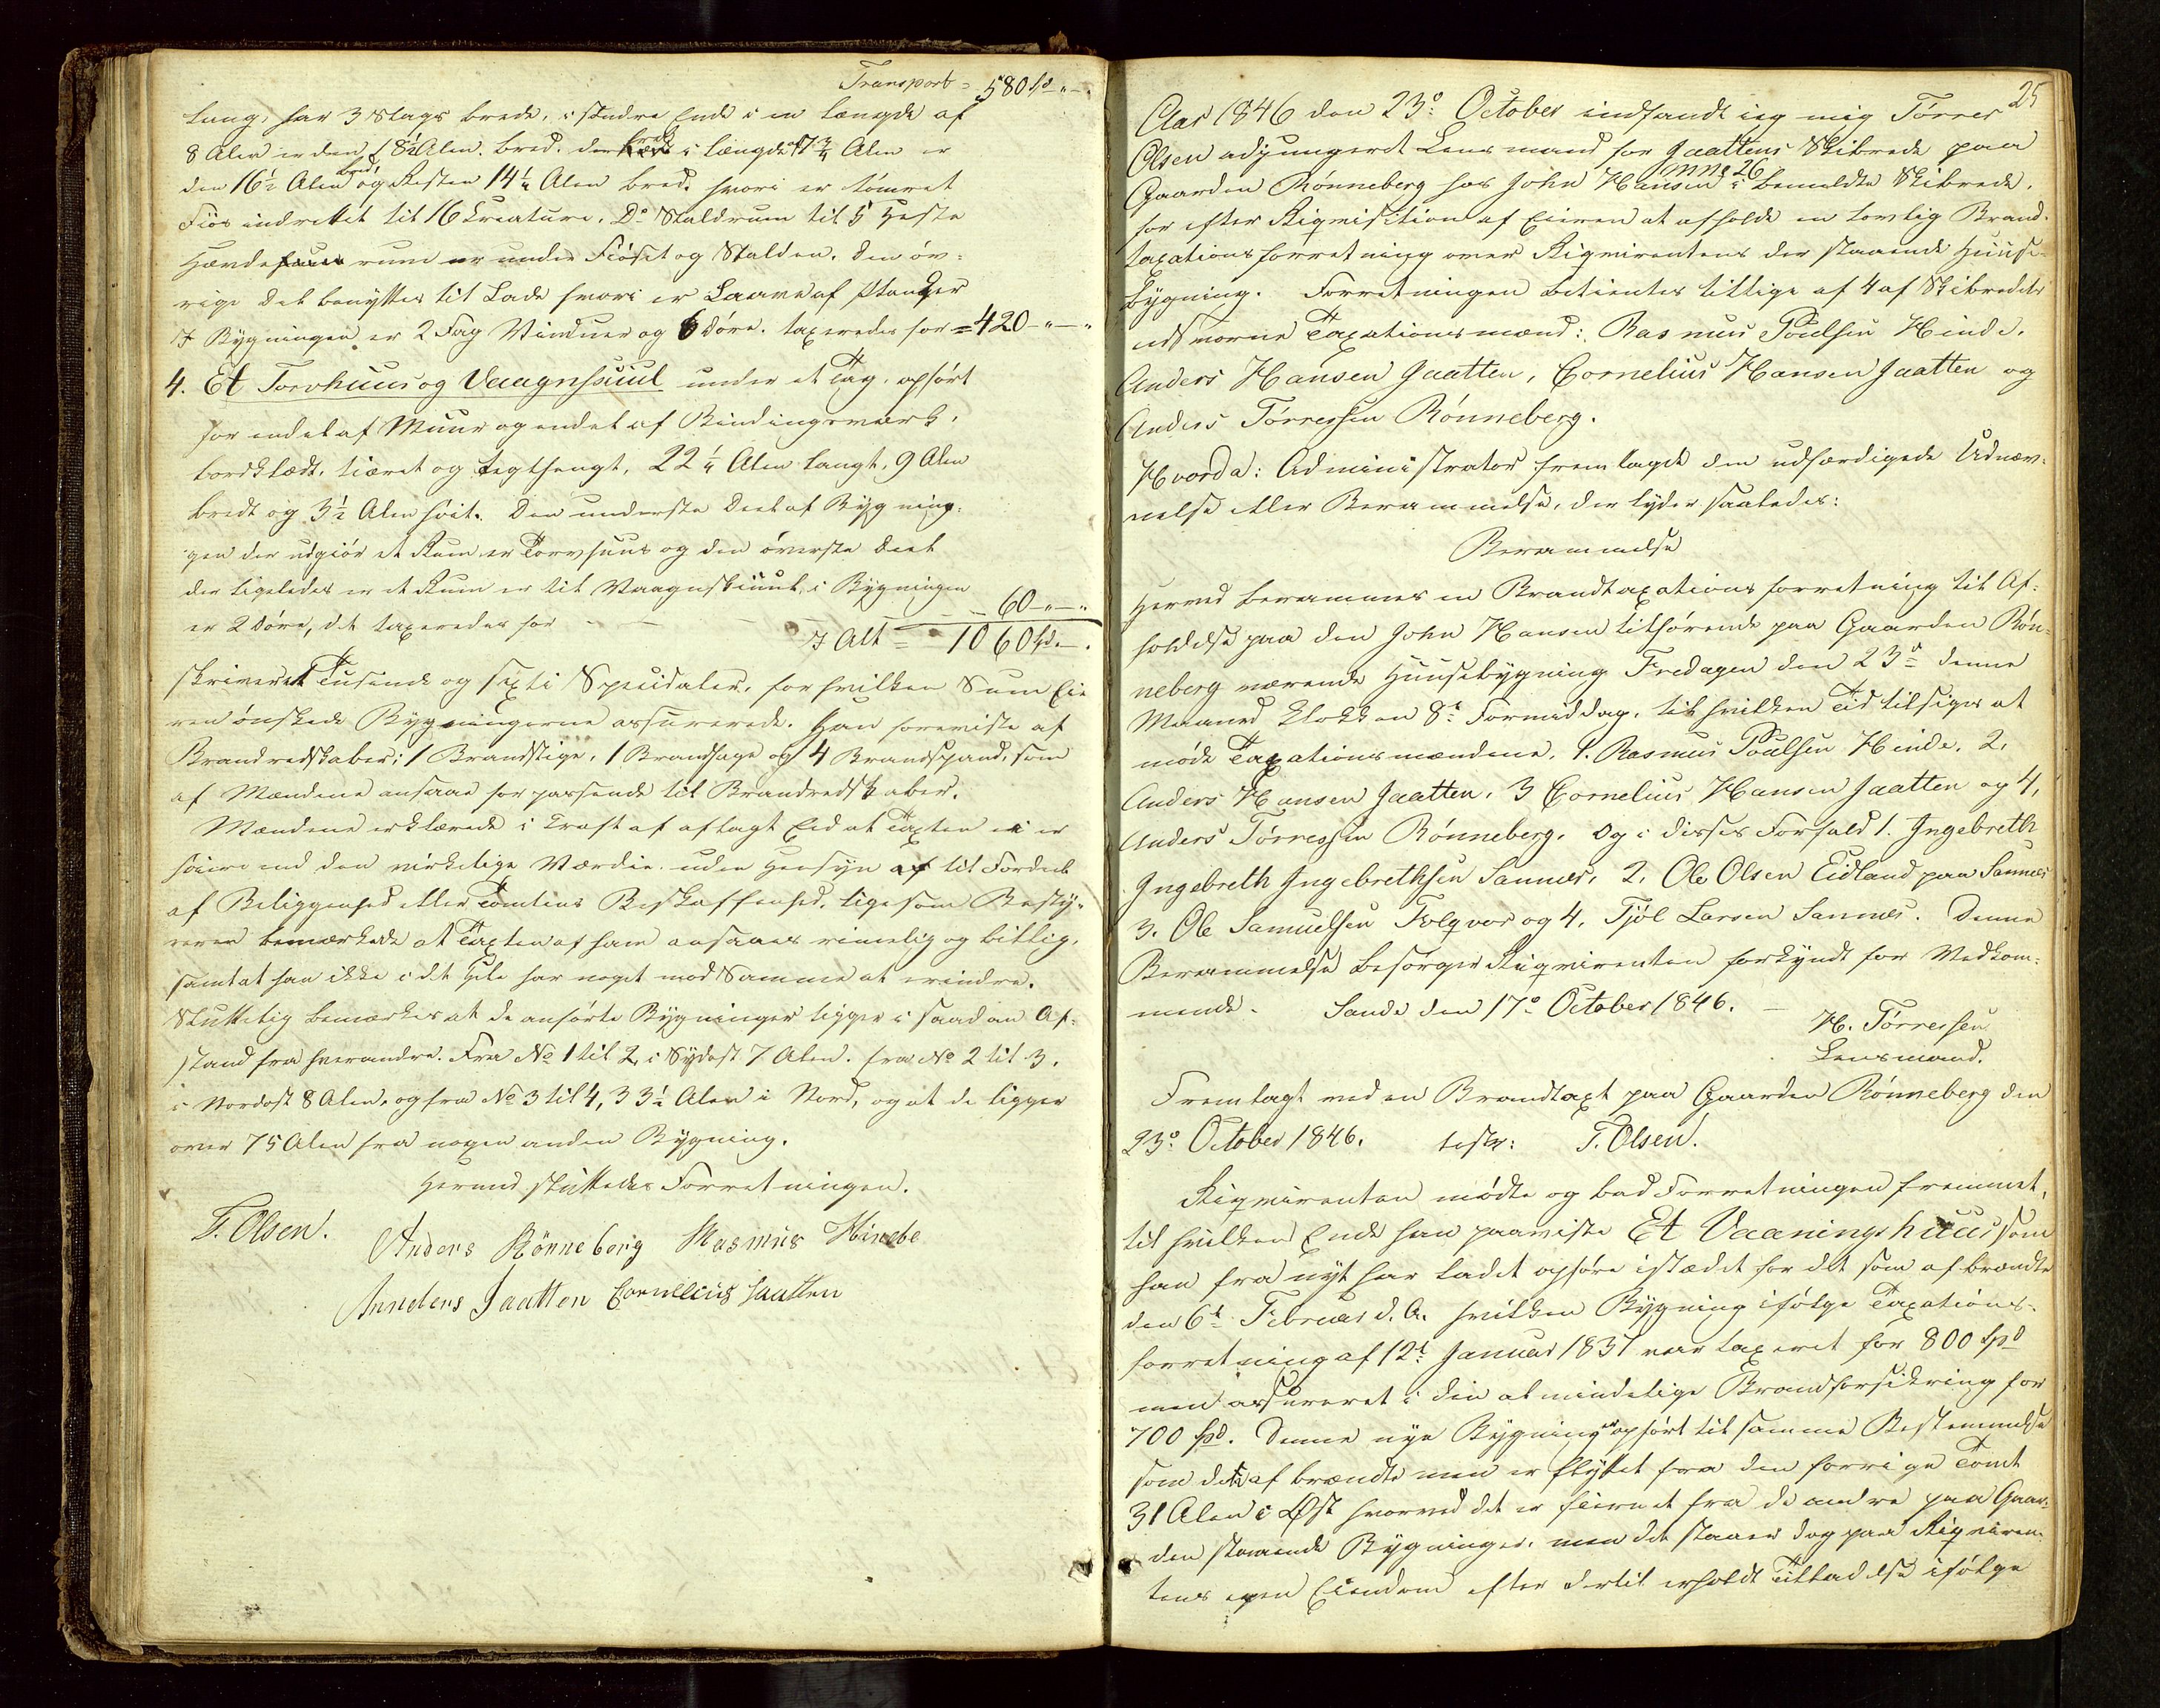 Transport = 580 Spd "-"
lang, har 3 Slags brede, i søndre Ende i en Længde af
8 Alen er den 8½ Alen bred, der fra i Længde 17¾ Alen er
den 16½ Alen bred, og Resten 14¼ Alen bred, hvori er tømret
Fiøs indrettet til 16 Creature, Do Staldrum til 5 Heste
rum er under Fiøset og Stalden. Den øv-
rige Deel benyttes til Lade hvori er Laave af Planker
I Bygningen er 2 Fag Vinduer og 6 Døre, taxeredes for = 420 - " - "
4. Et Torvhuus og Vaagnskiuul under et Tag, opført
for endel af Muur og endel af Bindingsværk,
bordklædt, tiæret og tegthengt, 22¼ Alen langt, 9 Alen
bredt og 3½ Alen høit. Den underste Deel af Bygnin-
gen der udgiør et Rum er Torvhuus og den øverste Deel
der ligeledes er et Rum er til Vaagnskiuul, i Bygningen
er 2 Døre, det taxeredes for - - - 60 - " - "
I Alt = 1060 Spd. - .
skriver et Tusinde og sexti Speciedaler, for hvilken Sum Eie
ren ønskede Bygningerne assurerede. Han foreviste af
Brandredskaber: 1 Brandstige, 1 Brandhage og 4 Brandspand, som
af Mændene ansaae for passende til Brandredskaber.
Mændene erklærede i Kraft af aflagt Eed at Taxten ei er
høiere end den virkelige Værdie uden Hensyn til Fordeel
af Beliggenhed eller Tomtens Beskaffenhed, ligesom Besty-
reren bemærkede at Taxten af ham ansaaes rimelig og billig,
samt at han ikke i det Hele har noget mod Samme at erindre.
Sluttelig bemærkes at de anførte Bygninger ligger i saadan Af-
stand fra hverandre. Fra No 1 til 2, i Sydost 7 Alen, fra No 2 til 3,
i Nordost 8 Alen, og fra No 3 til 4, 33½ Alen i Nord, og at de ligger
over 75 Alen fra nogen anden Bygning.
Hermed sluttedes Forretningen.
T. Olsen. Anders Rönneberg Rasmus Hinde
Annders Jaatten Cornelius Jaatten
25
Aar 1846 den 23de October indfandt ieg mig Tørres
Olsen adjungeret Lensmand for Jaattens Skibrede paa
Gaarden Rønneberg hos John Hansen mno 26 i bemeldte Skibrede,
for efter Reqvisition af Eieren at afholde en lovlig Brand-
taxationsforretning over Reqvirentens der staaende Huuse-
bygning. Forretningen betientes tillige af 4 af Skibredets
edsvorne Taxationsmænd: Rasmus Poulsen Hinde,
Anders Hansen Jaatten, Cornelius Hansen Jaatten og
Anders Tørressen Rønneberg.
Hvorda: Administrator fremlagde den udfærdigede Udnæv-
nelse eller Berammelse, der lyder saaledes:
Berammelse
Herved berammes en Brandtaxationsforretning til Af-
holdelse paa den John Hansen tilhørende paa Gaarden Røn-
neberg værende Huusebygning Fredagen den 23de denne
Maaned Klokken 8te Formiddag, til hvilken Tid tilsiges at
møde Taxationsmændene, 1. Rasmus Poulsen Hinde, 2,
Anders Hansen Jaatten, 3 Cornelius Hansen Jaatten og 4,
Anders Tørressen Rønneberg. Og i disses Forfald 1. Ingebreth
Ingebreth Ingebrethsen Sannes, 2. Ole Olsen Eidland paa Sannes
3. Ole Samuelsen Folqvor og 4, Tjøl Larsen Sannes. Denne
Berammelse besørger Reqvirenten forkyndt for Vedkom-
mende. Sande den 17de October 1846. -
H. Tørressen
Lensmand.
Fremlagt ved en Brandtaxt paa Gaarden Rønneberg den
23de October 1846. test: T. Olsen.
Reqvirenten mødte og bad Forretningen fremmet,
til hvilken Ende han paaviste Et Vaaningshuus som
han fra nyt har ladet opføre istædet for det som afbrændte
den 6te Februar d. A. hvilken Bygning ifølge Taxations-
forretning af 12te Januar 1837 var taxeret for 800 Spd
men assureret i den almindelige Brandforsikring for
700 Spd. Denne nye Bygning er opført til samme Bestemmelse
som det afbrændte men er flyttet fra den forrige Tomt
31 Alen i Øst hvorved det er fiernet fra de andre paa Gaar-
den staaende Bygninger, men det staaer dog paa Reqviren-
tens egen Eiendom efter dertil erholdt Tilladelse ifølge